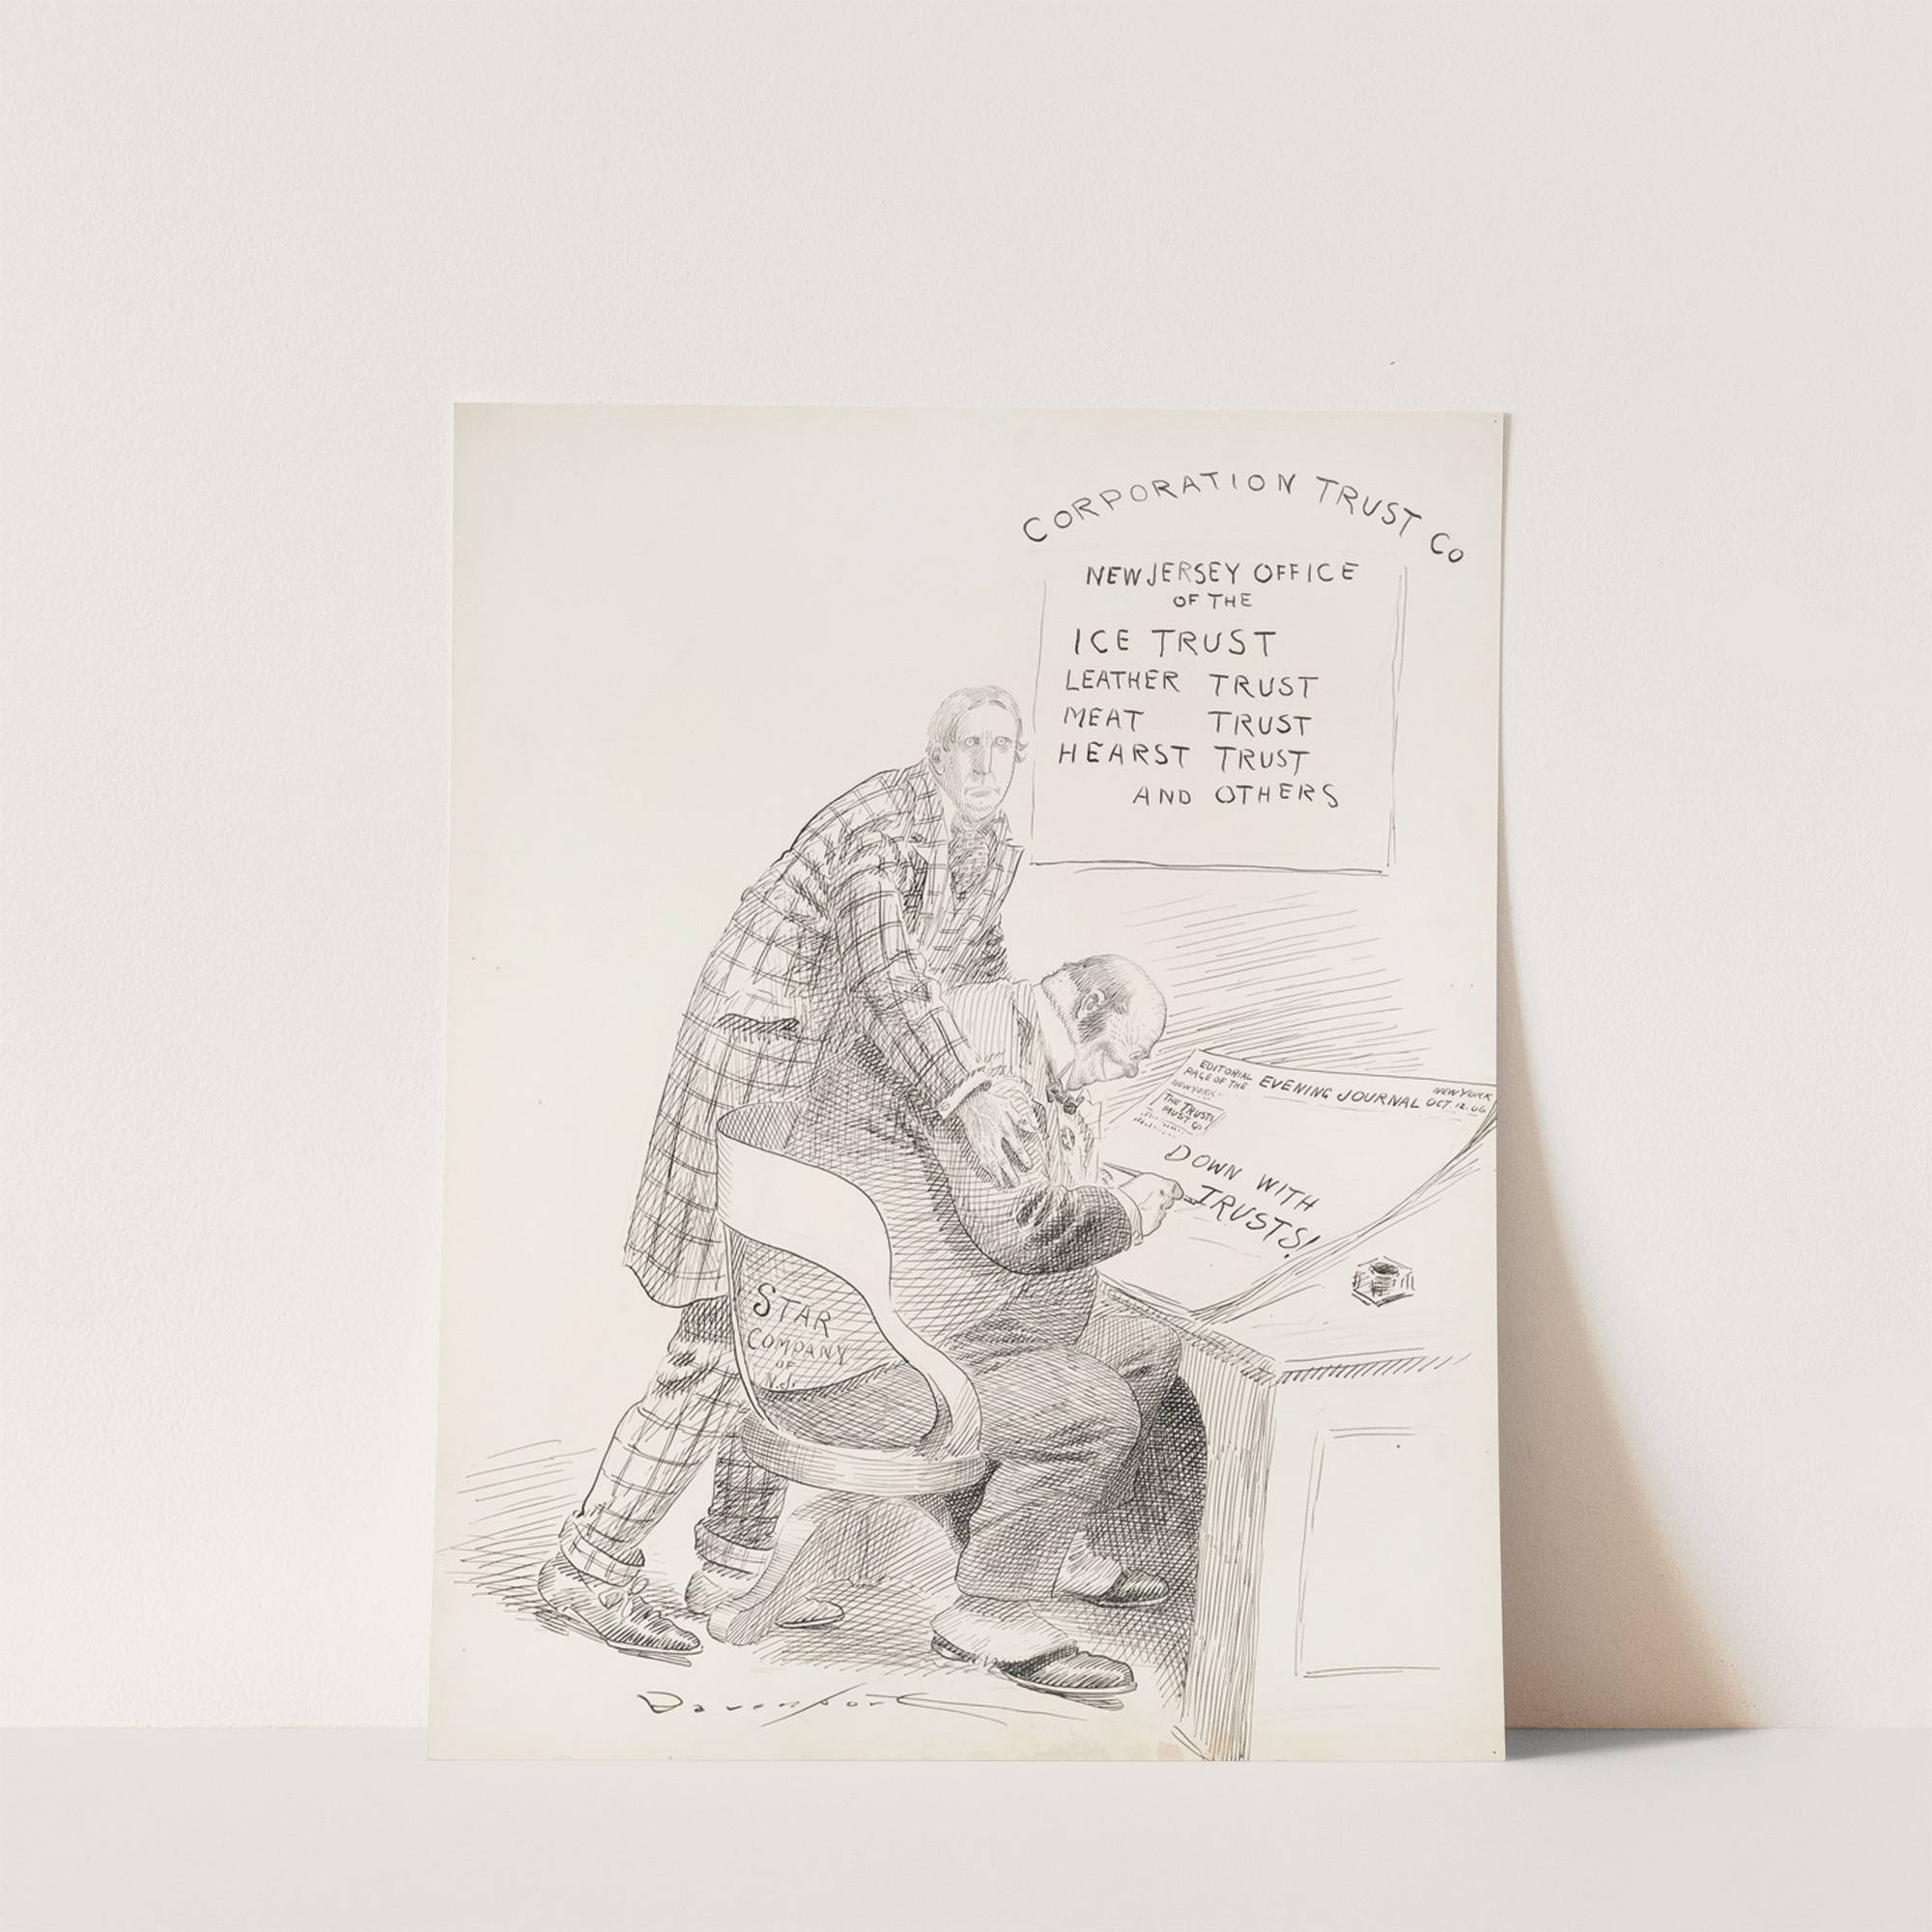 CORPORATION TRUST Co
NEW JERSEY OFFICE
OF THE
ICE TRUST
LEATHER TRUST
MEAT TRUST
HEARST TRUST
AND OTHERS
EDITORIAL
PAGE OF THE
NEW YORK
EVENING JOURNAL
NEW YORK
OCT. 12. 06
THE TRUSTS
MUST GO!
DOWN WITH
TRUSTS!
STAR
COMPANY
OF
N.J.
Davenport